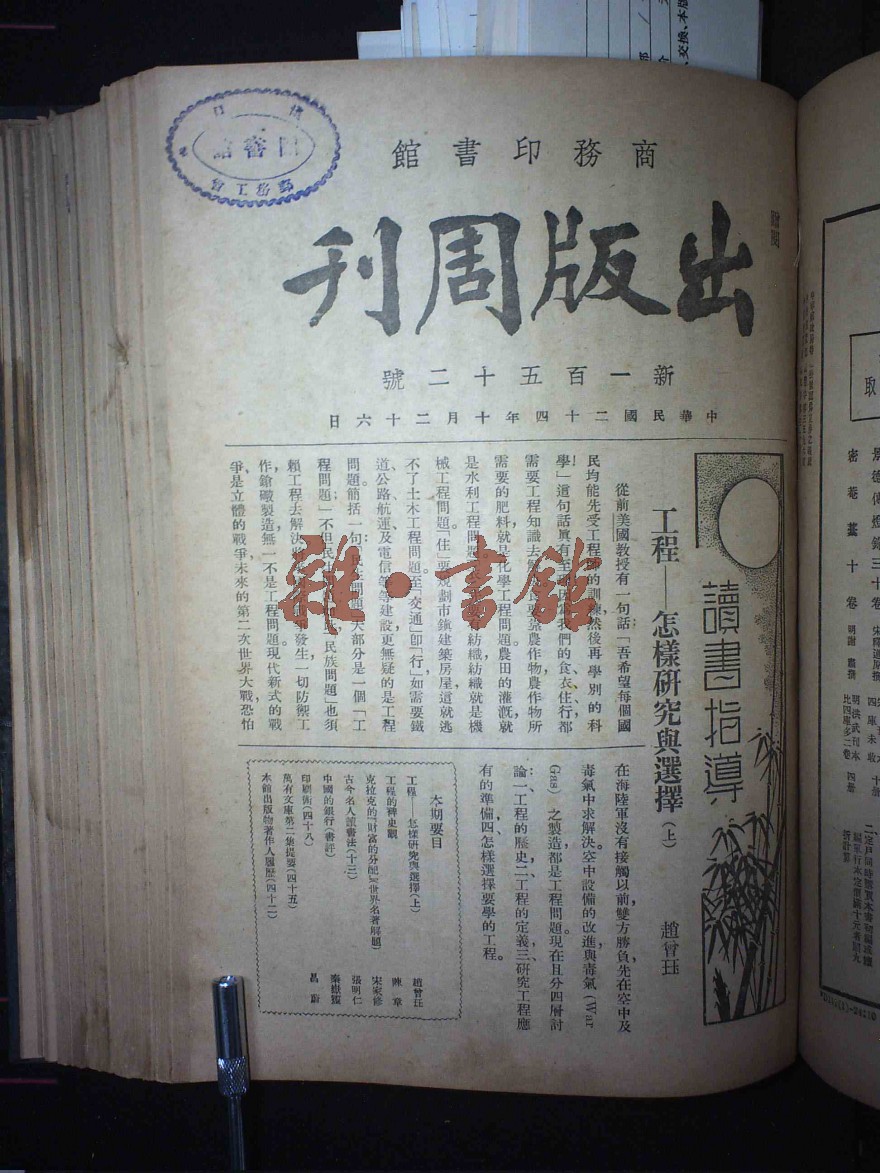 商務印書館
出版周刊
新一百五十二號
中華民國二十四年十月二十六日
讀書指導
工程——怎樣研究與選擇(上)
趙曾珏
從前美國教授有一句話「吾希望每個國
民均能先受工程師的訓練然後再學別的科
學!」這句話眞有至理因爲我們的食衣住行都
需要工程知識去解決民更靠農作物農作物所
需要的肥料就是化學工程問題農田的灌溉就
是水利工程問題紡織紡織就是機
械工程問題。「住」要規劃市鎮建築房屋這就逃
不了土木工程問題至「交通」卽「行」如需要鐵
道、公路航運及電信等等建設更無疑的是工程
問題簡括一句民生問題大部分是一個「工
程問題」不但民生民族問題」也須
賴工程去解決發生一切防禦工
作鎗礮製造無一不是工程問題現代新式的戰
爭、是立體的戰爭未來的第二次世界大戰恐怕
在海陸軍沒有接觸以前雙方勝負先在空中及
毒氣中求解決空中設備的改進與毒氣(War
Gas)之製造都是工程問題現在且分四層討
論:一、工程的歷史二、工程的定義三、研究工程應
有的準備四、怎樣選擇要學的工程。
本期要目
工程——怎樣研究與選擇(上) 趙曾珏
工程的稗史觀 陳章
克拉克的「財富的分配」(世界名著解題) 宋家修
古今名人讀書法(十三) 張明仁
中國的銀行(書評) 秦嶽獵
印刷術(四十八) 昌蔚
萬有文庫第二集提要(四十五)
本館出版物著作人履歷(四十二)
雜·書館
景德傳燈錄三十卷
密菴藳十卷
取